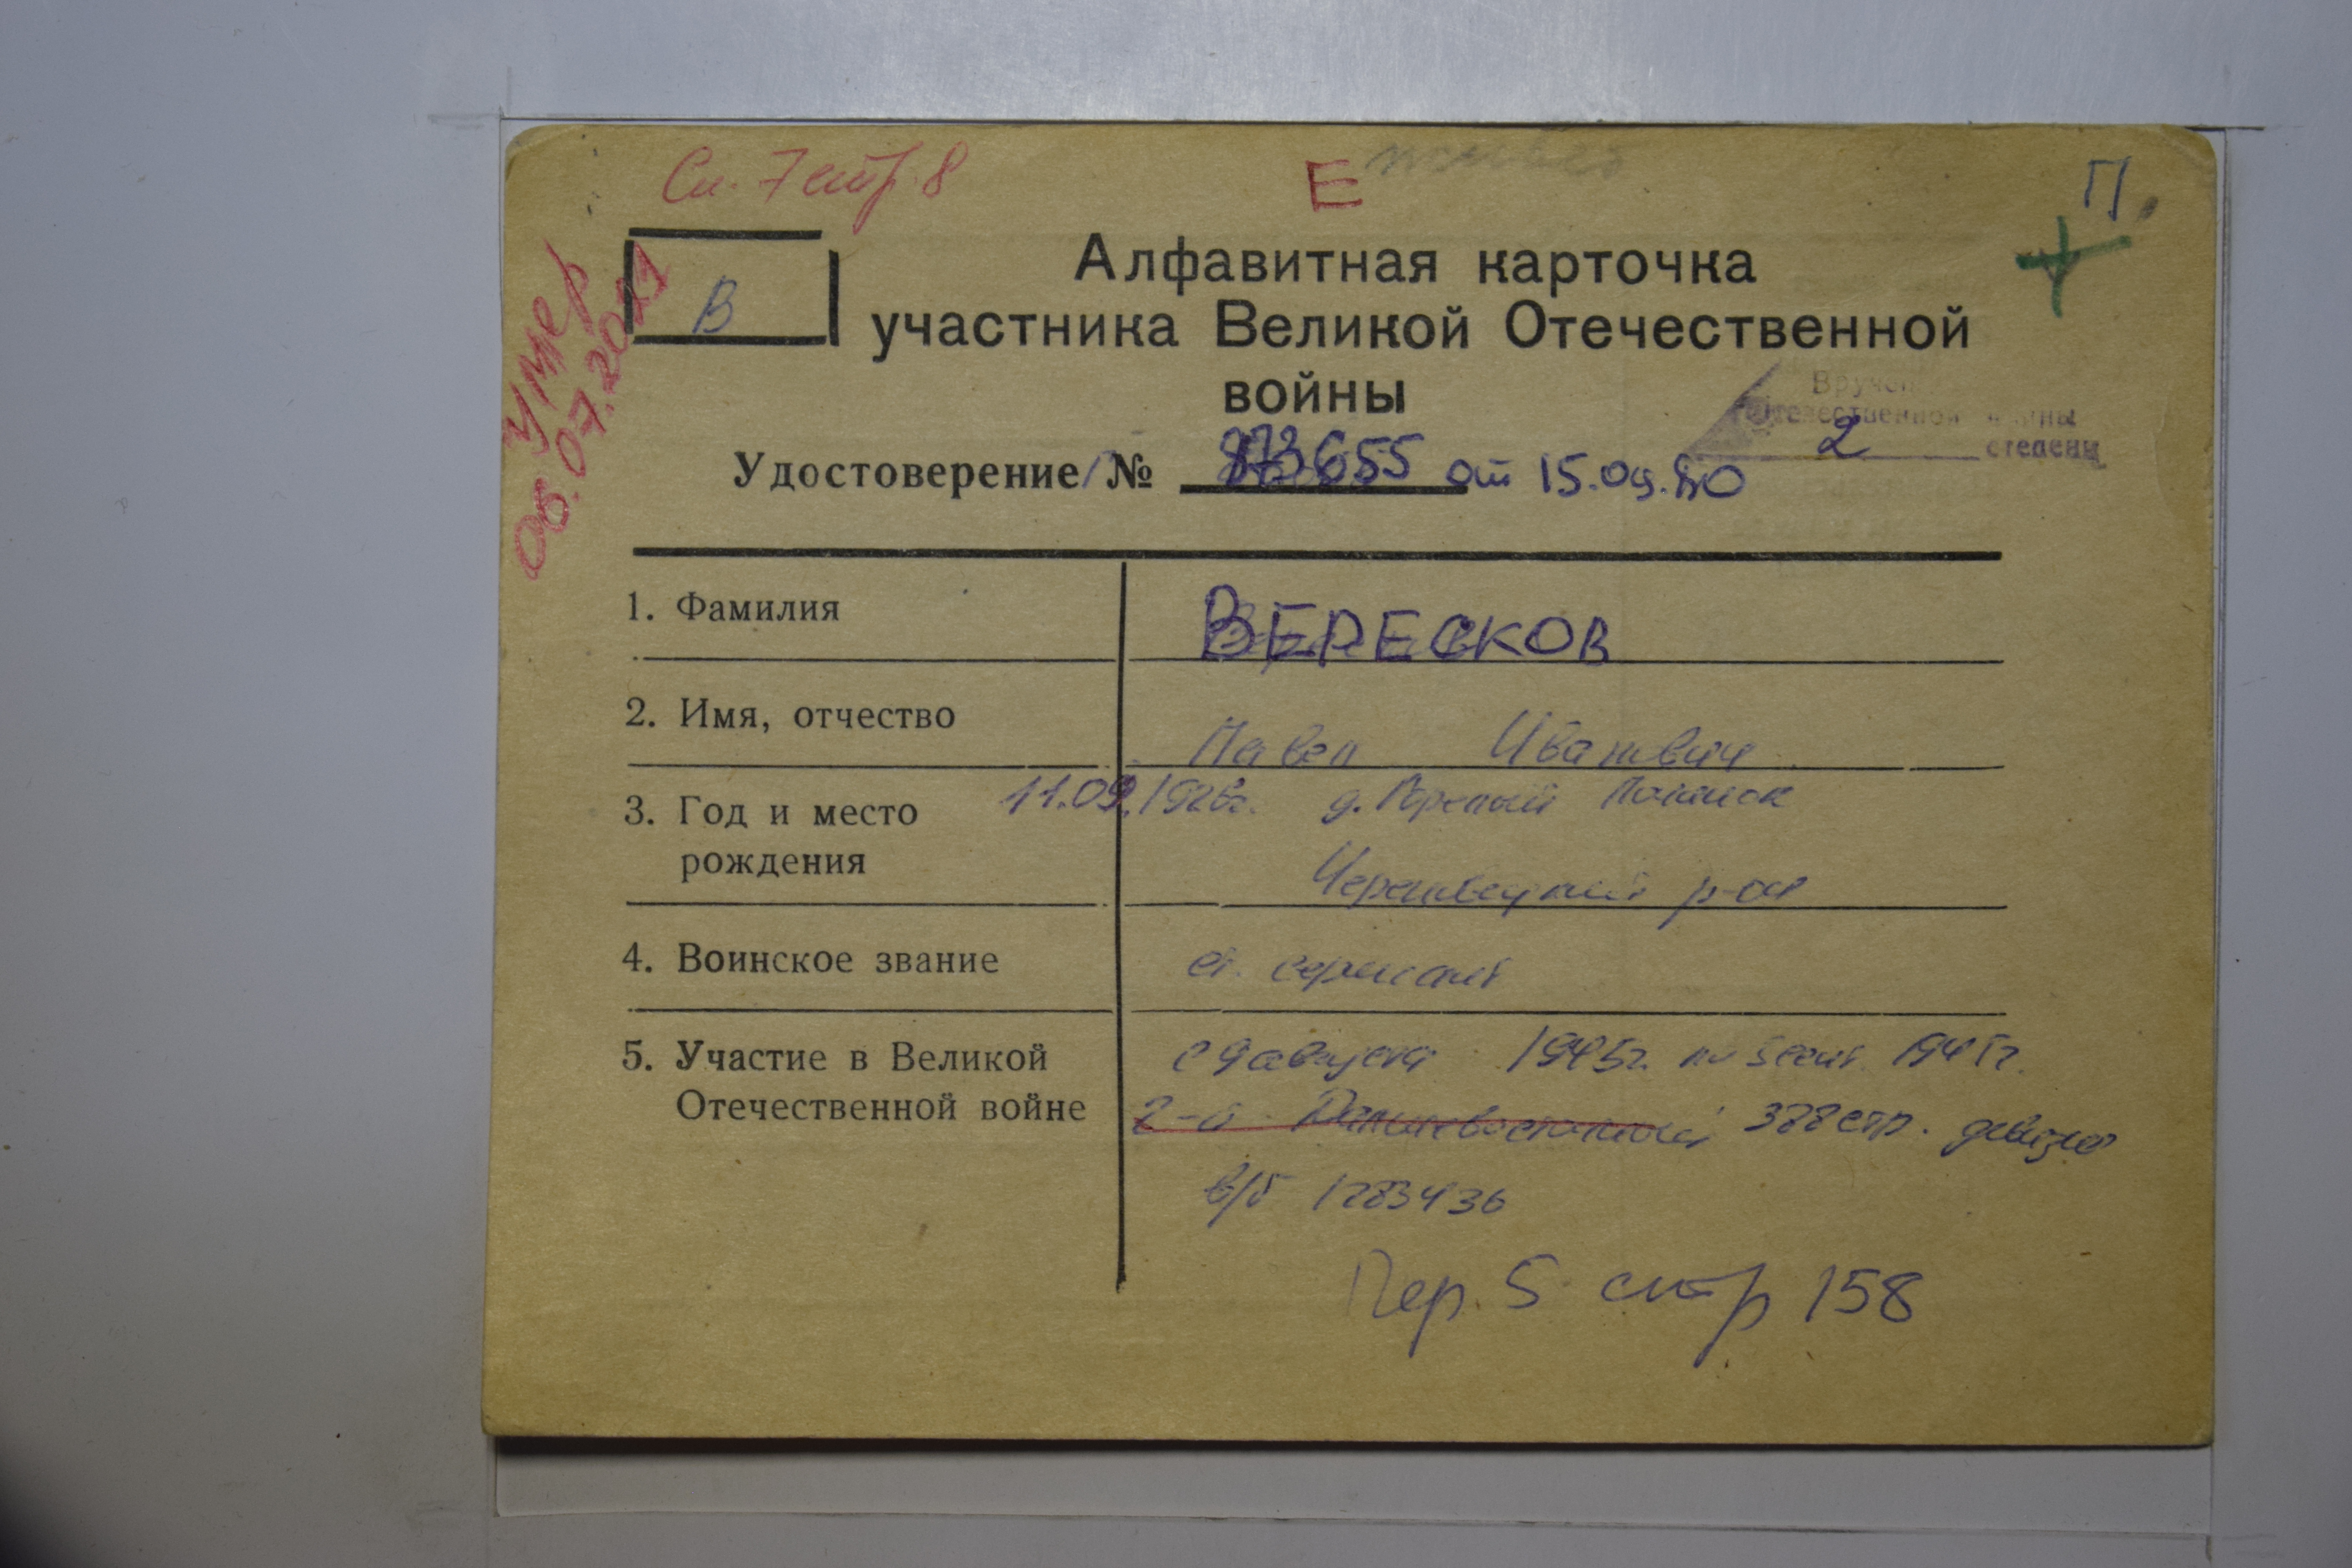 Сп. 7 стр. 8
Е
П.
Умер
В
Алфавитная карточка
участника Великой Отечественной
войны
Вручен
Отечественной войны
2 степени
Удостоверение № 655 от 15.09.80
1. Фамилия ВЕРЕСКОВ
2. Имя, отчество Павел Иванович
3. Год и место 11.09.1926г. д. Горелый Починок
рождения Череповецкий р-он
4. Воинское звание ст. сержант
5. Участие в Великой с 9 августа 1945г. по 3 сент. 1945г.
Отечественной войне 2-й Дальневосточный 388 стр. дивизия
в/б 1283436
Пер. 5 стр 158